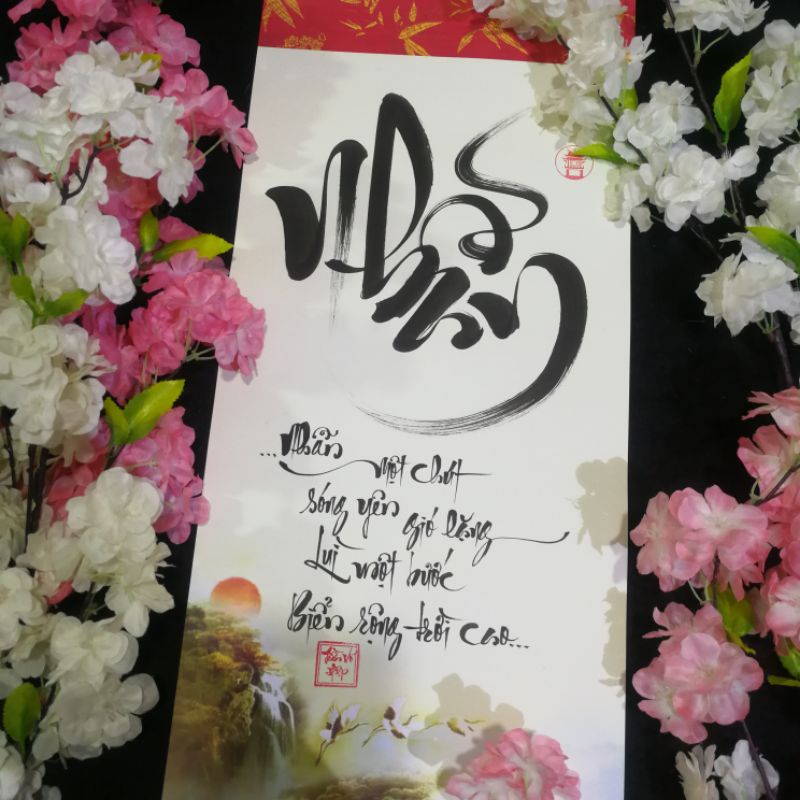 Nhẫn
...Nhẫn
một chút
sóng yên gió lặng
Lùi một bước
Biển rộng trời cao...